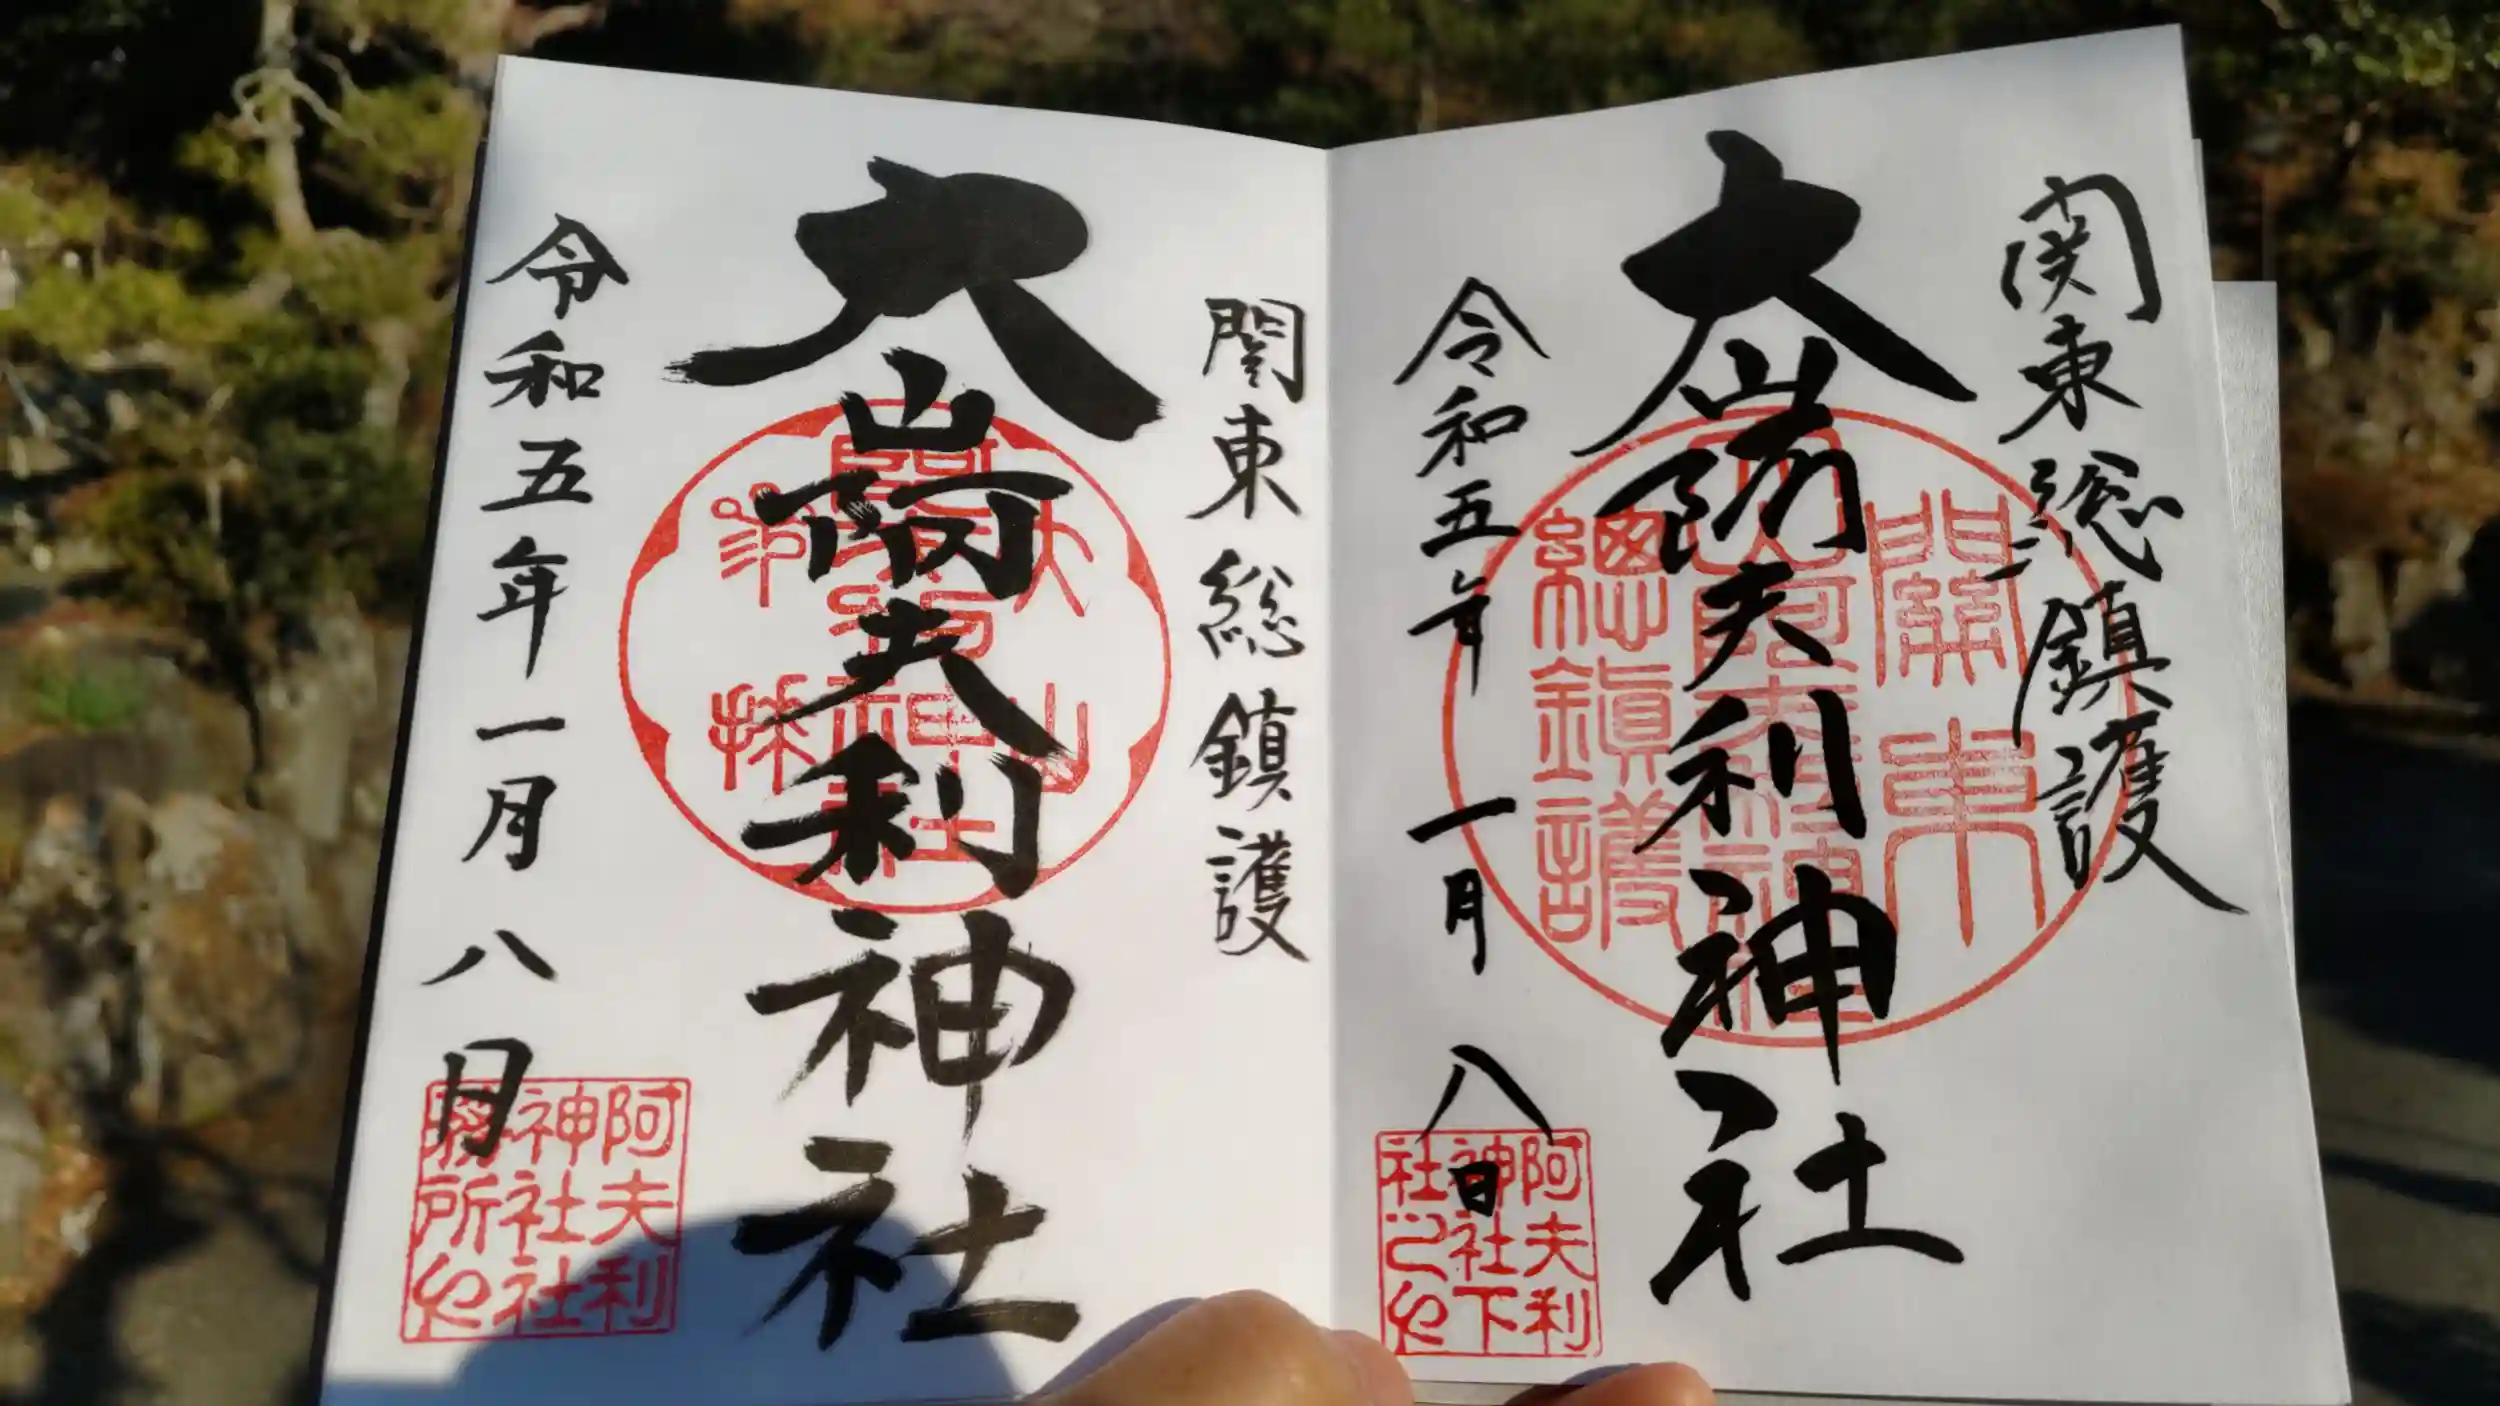 関東総鎮護
大山阿夫利神社
令和五年一月八日
關東
總鎮護
阿夫利
神社下
社之印
関東総鎮護
大山阿夫利神社
令和五年一月八日
大山
阿夫利
神社社
務所印